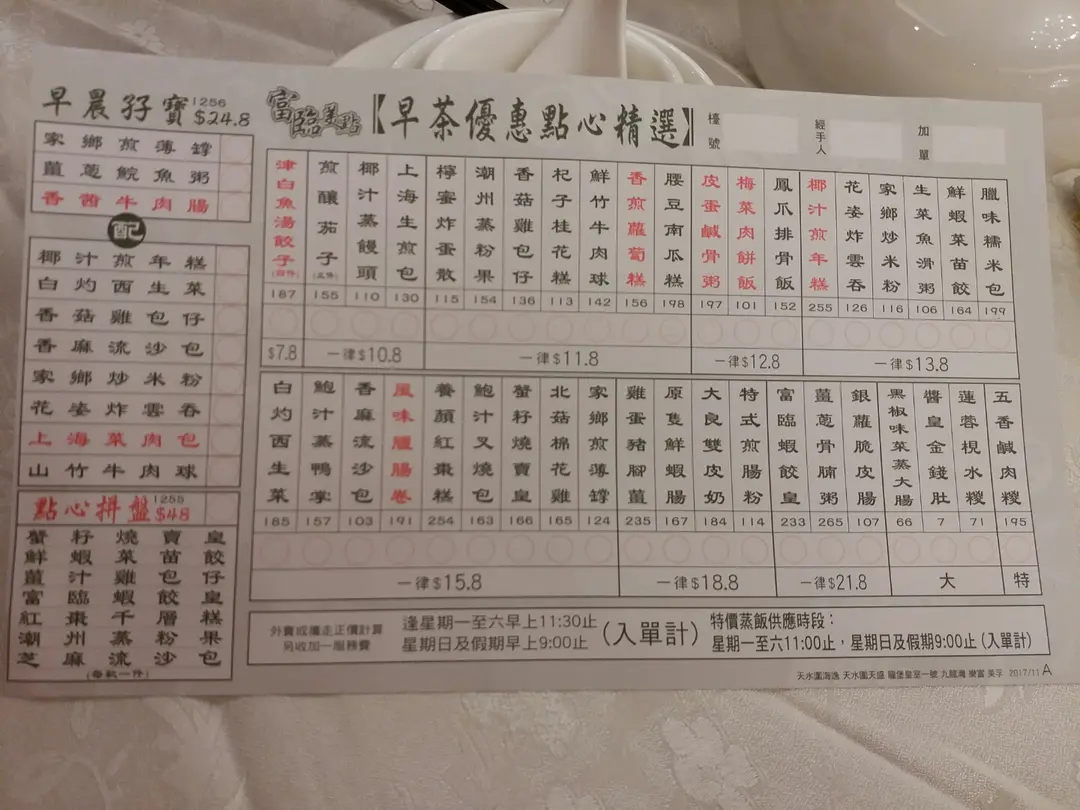 早晨孖寶 1256 $24.8
家鄉煎薄罉
薑蔥鯇魚粥
香茜牛肉腸
配
椰汁煎年糕
白灼西生菜
香菇雞包仔
香麻流沙包
家鄉炒米粉
花姿炸雲吞
上海菜肉包
山竹牛肉球
點心拼盤 1255 $48
蟹籽燒賣皇
鮮蝦菜苗餃
薑汁雞包仔
富臨蝦餃皇
紅棗千層糕
潮州蒸粉果
芝麻流沙包
(每款一件)
富臨美點【早茶優惠點心精選】
檯號
經手人
加單
津白魚湯餃子 187
煎釀茄子 155
椰汁蒸饅頭 110
上海生煎包 130
檸蜜炸蛋散 115
潮州蒸粉果 154
香菇雞包仔 136
杞子桂花糕 113
鮮竹牛肉球 142
香煎蘿蔔糕 156
腰豆南瓜糕 198
皮蛋鹹骨粥 197
梅菜肉餅飯 101
鳳爪排骨飯 152
椰汁煎年糕 255
花姿炸雲吞 126
家鄉炒米粉 116
生菜魚滑粥 106
鮮蝦菜苗餃 164
臘味糯米包 199
$7.8 一律$10.8 一律$11.8 一律$12.8 一律$13.8
白灼西生菜 185
鮑汁蒸鴨掌 157
香麻流沙包 103
風味臘腸卷 191
養顏紅棗糕 254
鮑汁叉燒包 163
蟹籽燒賣皇 166
北菇棉花雞 165
家鄉煎薄罉 124
雞蛋豬腳薑 235
原隻鮮蝦腸 167
大良雙皮奶 184
特式煎腸粉 114
富臨蝦餃皇 233
薑蔥骨腩粥 265
銀蘿脆皮腸 107
黑椒味菜蒸大腸 66
醬皇金錢肚 7
蓮蓉梘水糉 71
五香鹹肉糉 195
一律$15.8 一律$18.8 一律$21.8 大 特
外賣或攜走正價計算
另收加一服務費
逢星期一至六早上11:30止
星期日及假期早上9:00止
(入單計)
特價蒸飯供應時段：
星期一至六11:00止，星期日及假期9:00止(入單計)
天水圍海逸 天水圍天盛 龍堡皇至一號 九龍灣 樂富 美孚 2017/11 A